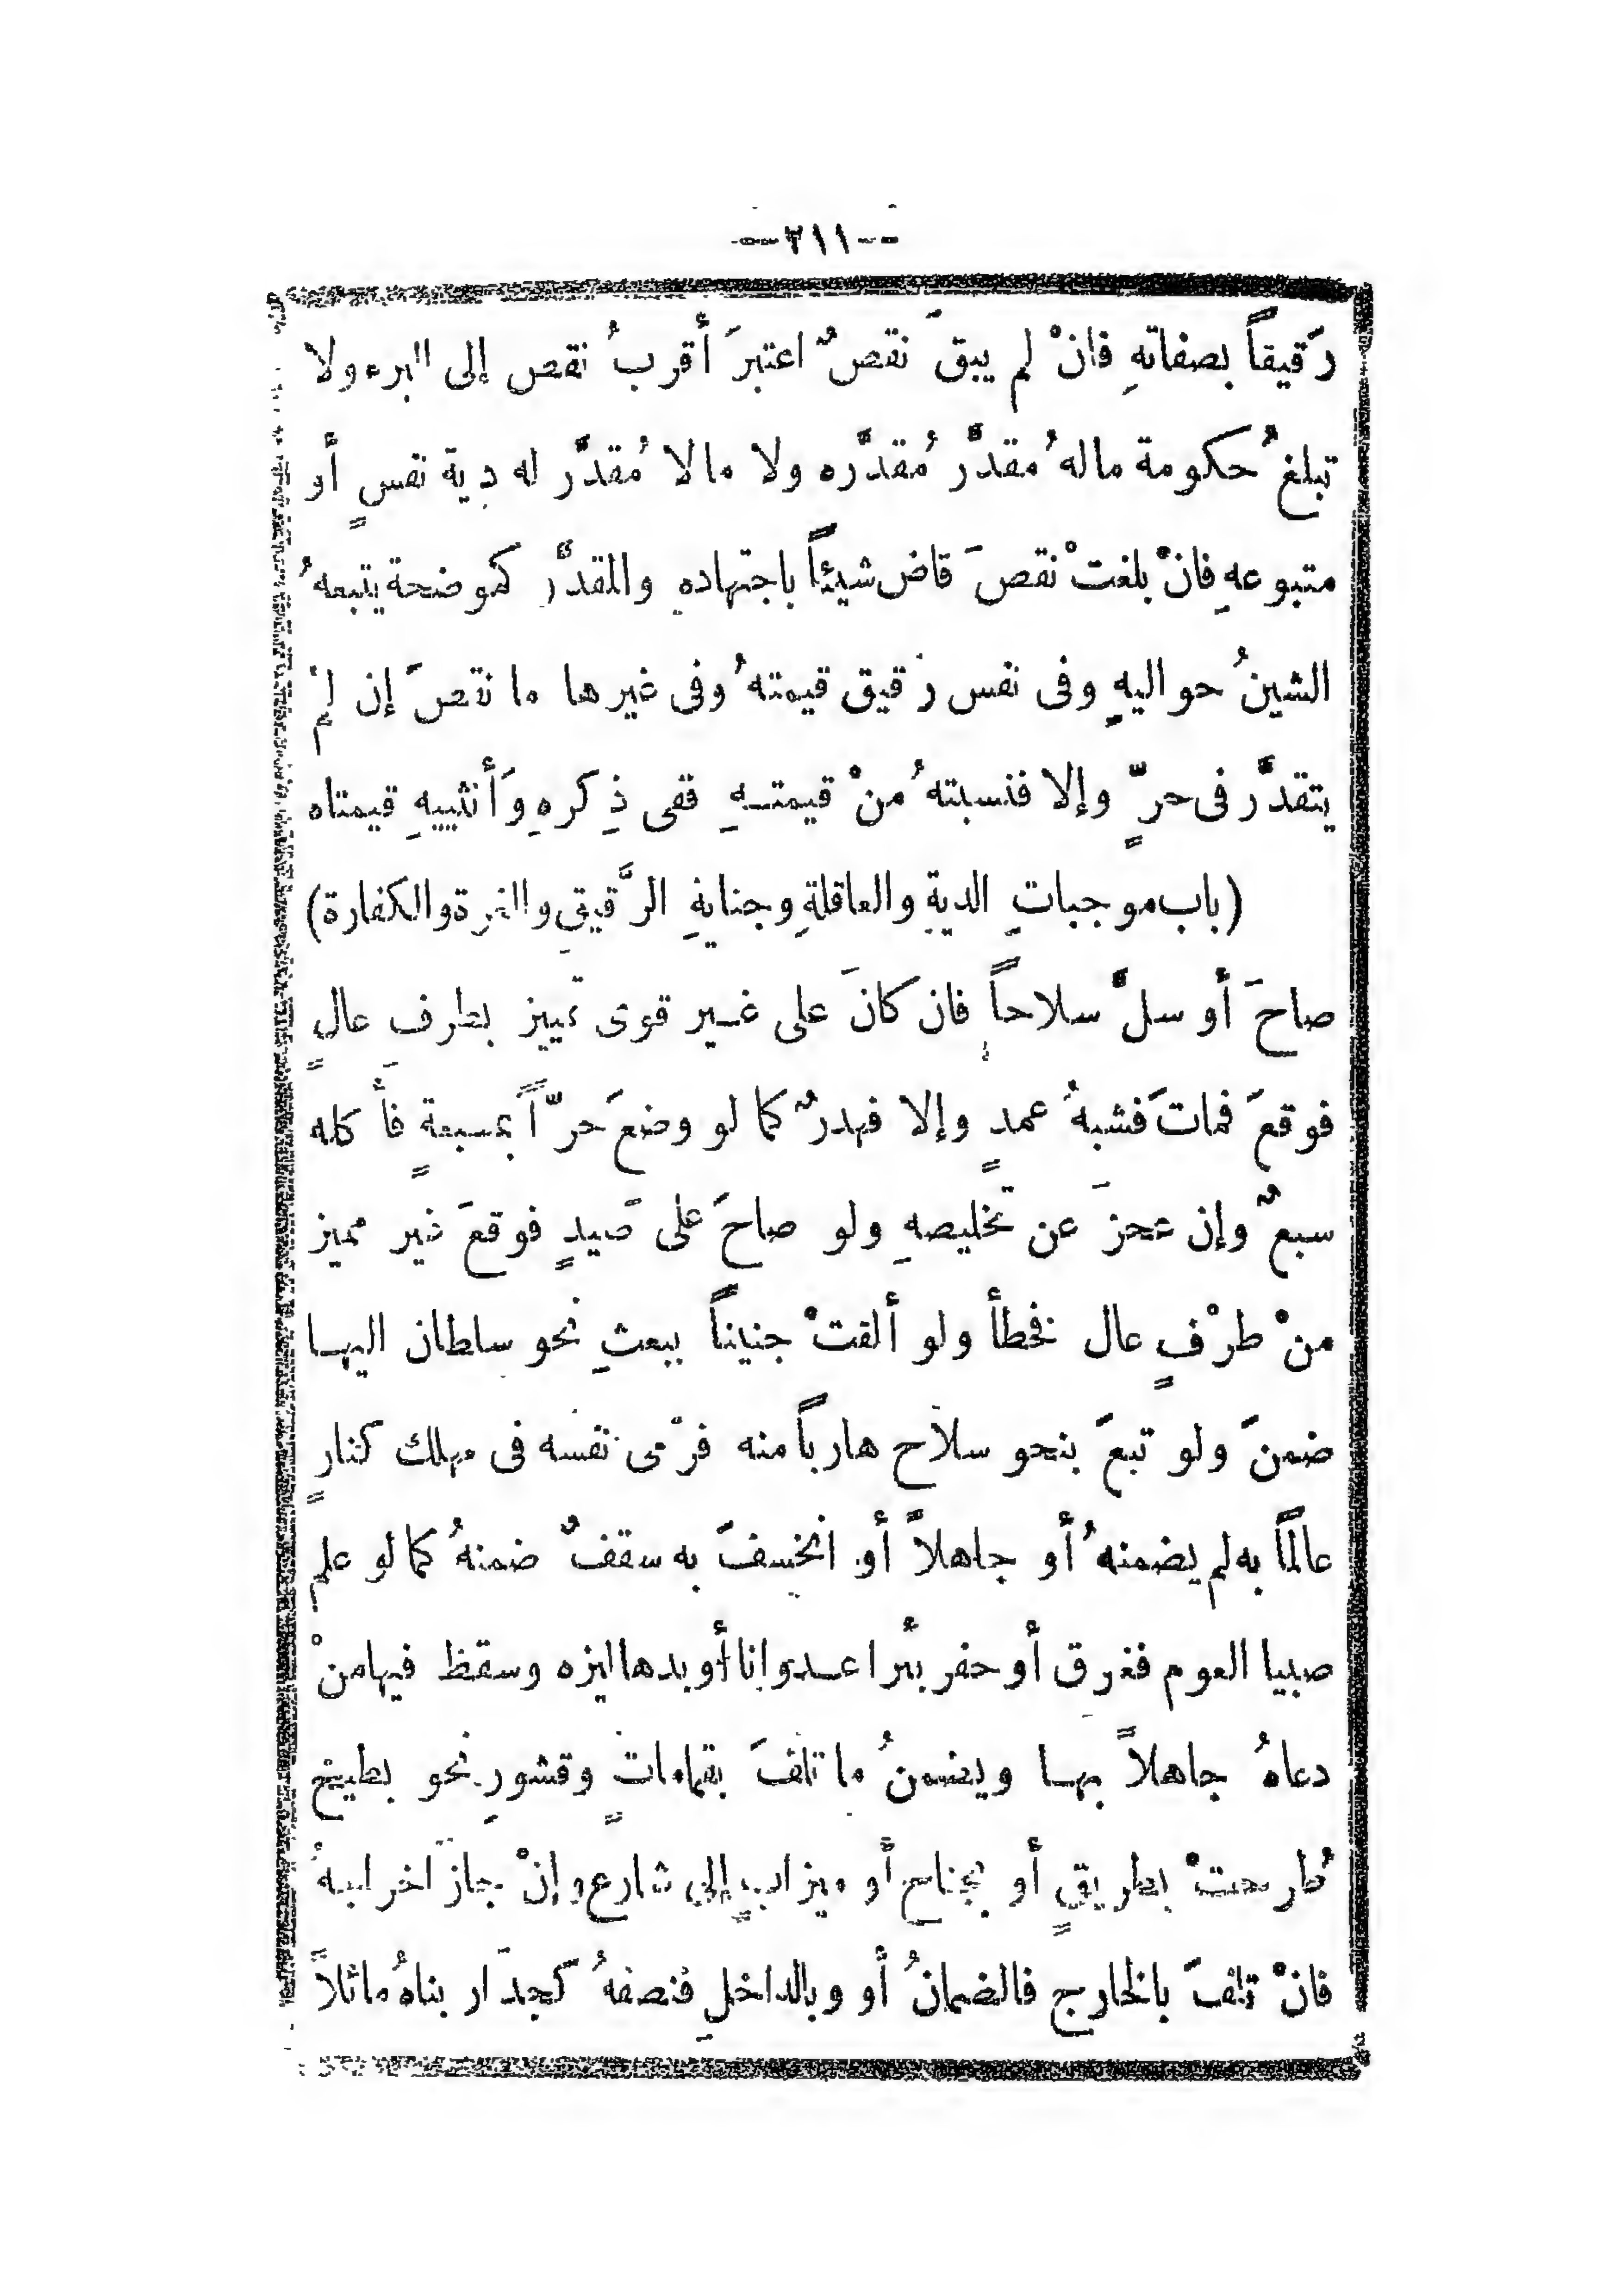 --٢١١--
رَقيقاً بصفاتهِ فانْ لم يبقَ نقصٌ اعتبرَ أقربُ نقص إلى البرء ولا
تبلغُ حكومة ماله ُمقدَّر ُمقدَّره ولا مالا ُمقدَّر له دية نفسٍ أو
متبوعهِ فانْ بلغتْ نقصَ قاض شيئاً باجتهادهِ والمقدَّر كموضحة يتبعهُ
الشينُ حواليهِ وفى نفس رَقيق قيمتهُ وفى غيرها ما نقصَ إن لمْ
يتقدَّر فى حرٍّ وإلا فنسبتهُ منْ قيمتهِ ففى ذِكرهِ وَأنثييهِ قيمتاه
(باب موجباتِ الديةِ والعاقلةِ وجنايةِ الرَّقيقِ والغرة والكفارة)
صاحَ أو سلَّ سلاحاً فان كانَ على غير قوى تمييز بطرف عالٍ
فوقعَ فماتَ فشبهُ عمدٍ وإلا فهدرٌ كما لو وضعَ حرّاً بمسبعةٍ فأَكله
سبعٌ وإن عجزَ عن تخليصهِ ولو صاحَ على صيدٍ فوقعَ غير مميز
منْ طرْفٍ عال فخطأ ولو ألقتْ جنيناً ببعثِ نحو سلطان اليها
ضمنَ ولو تبعَ بنحو سلاح هارباً منه فرَمى نفسه فى مهلك كنارٍ
عالمًا به لم يضمنهُ أو جاهلاً أو انخسفَ به سقفٌ ضمنهُ كما لو علم
صبيا العوم فغرق أو حفر بئرا عدوانا أو بدهاليزه وسقط فيها منْ
دعاهُ جاهلاً بها ويضمنُ ما تلفَ بقماماتٍ وقشورِ نحو بطيخ
ُطرحتْ بطريقٍ أو بجناحٍ أو ميزابٍ إلى شارع وإنْ جازَ اخراجهُ
فانْ تلفَ بالخارج فالضمانُ أو وبالداخلِ فنصفهُ كجدَار بناهُ مائلاً